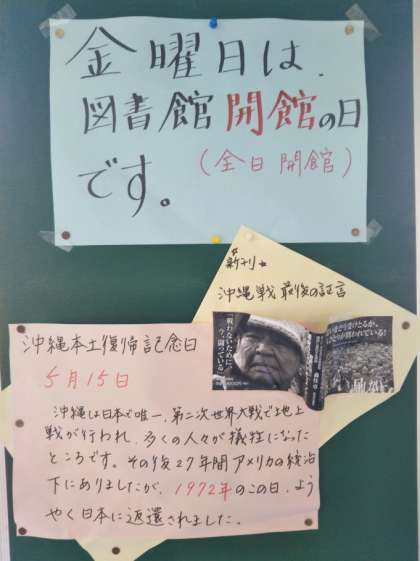 金曜日は、
図書館開館の日
(全日開館)
です。
新刊
沖縄戦 最後の証言
「戦わないために、
今、闘っている」
沖縄本土復帰記念日
5月15日
沖縄は日本で唯一、第二次世界大戦で地上
戦が行われ、多くの人々が犠牲になった
ところです。その後27年間アメリカの統治
下にありましたが、1972年のこの日、よう
やく日本に返還されました。